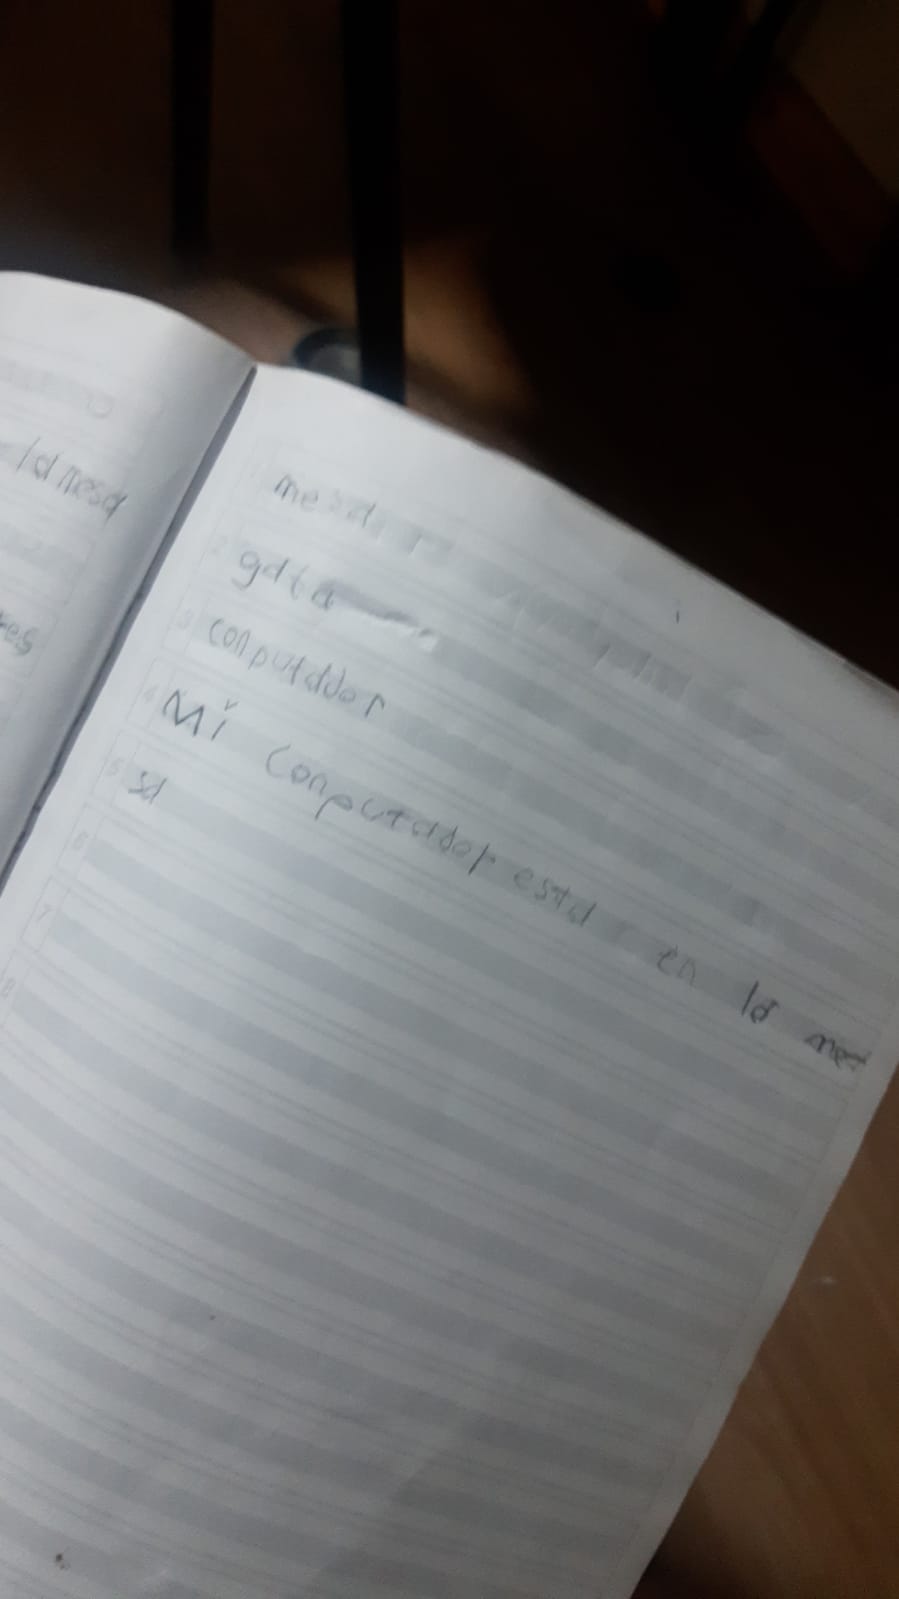 la mesa
es
mesa
gata
conputador
Mi conputador esta en la me
sa